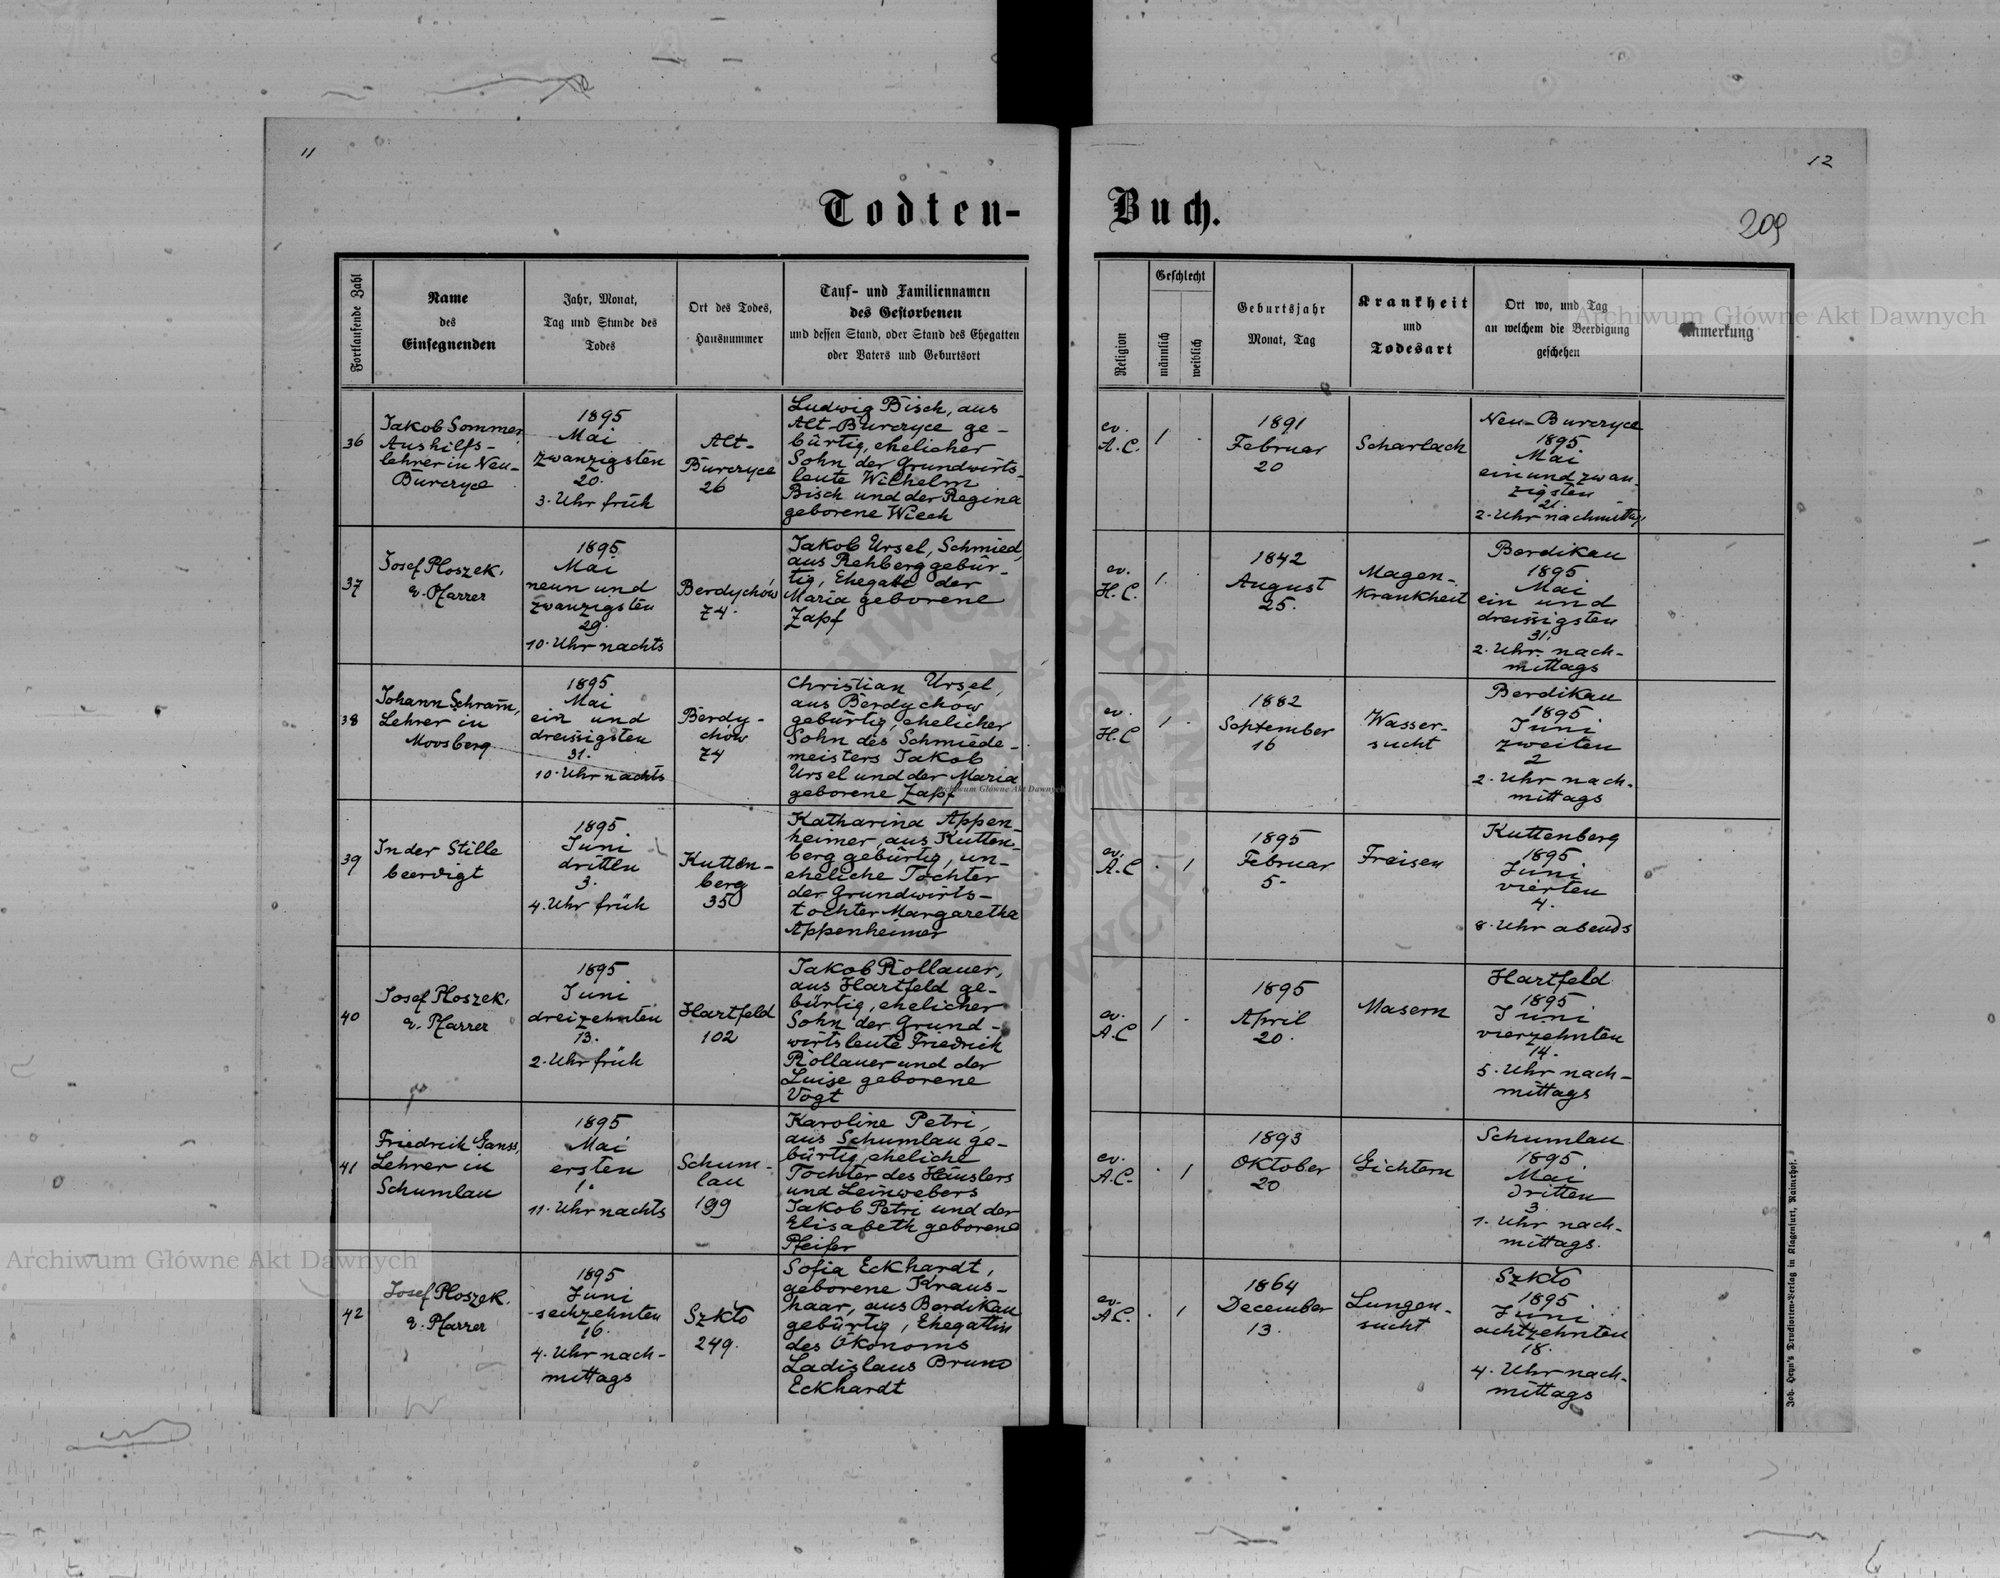 11
12
Todten-
Buch.
209
Fortlaufende Zahl
Name
des
Einsegnenden
Jahr, Monat,
Tag und Stunde des
Todes
Ort des Todes,
Hausnummer
Tauf- und Familiennamen
des Gestorbenen
und dessen Stand, oder Stand des Ehegatten
oder Vaters und Geburtsort
Religion
Geschlecht
männlich
weiblich
Geburtsjahr
Monat, Tag
Krankheit
und
Todesart
Ort wo, und Tag
an welchem die Beerdigung
geschehen
Anmerkung
36
Jakob Sommer
Aushilfs-
lehrer in Neu-
Burczyce
1895
Mai
zwanzigsten
20.
3. Uhr früh
Alt-
Burczyce
26
Ludwig Bisch, aus
Alt-Burczyce ge-
bürtig, ehelicher
Sohn der Grundwirts-
leute Wilhelm
Bisch und der Regina
geborene Wiech
ev.
A.C.
1
1891
Februar
20
Scharlach
Neu-Burczyce
1895
Mai
ein und zwan-
zigsten
21.
2. Uhr nachmittag
37
Josef Ploszek,
ev. Pfarrer
1895
Mai
neun und
zwanzigsten
29.
10. Uhr nachts
Berdychów
74.
Jakob Ursel, Schmied,
aus Rehberg gebür-
tig, Ehegatte der
Maria geborene
Zapf
ev.
H.C.
1.
1842
August
25.
Magen-
krankheit
Berdikau
1895
Mai
ein und
dreissigsten
31.
2. Uhr nach-
mittags
38
Johann Schram̄,
Lehrer in
Moosberg
1895
Mai
ein und
dreissigsten
31.
10. Uhr nachts
Berdy-
chów
74
Christian Ursel,
aus Berdychów
gebürtig, ehelicher
Sohn des Schmiede-
meisters Jakob
Ursel und der Maria
geborene Zapf
ev.
H.C
1
1882
September
16
Wasser-
sucht
Berdikau
1895
Juni
zweiten
2
2. Uhr nach-
mittags
39
In der Stille
beerdigt
1895
Juni
dritten
3.
4. Uhr früh
Kutten-
berg
35
Katharina Appen-
heimer, aus Kutten-
berg gebürtig, un-
eheliche Tochter
der Grundwirts-
tochter Margaretha
Appenheimer
ev.
A.C
1
1895
Februar
5.
Freisen
Kuttenberg
1895
Juni
vierten
4.
8. Uhr abends
40
Josef Ploszek,
ev. Pfarrer
1895
Juni
dreizehnten
13.
2. Uhr früh
Hartfeld
102
Jakob Rollauer,
aus Hartfeld ge-
bürtig, ehelicher
Sohn der Grund-
wirtsleute Friedrich
Rollauer und der
Luise geborene
Vogt
ev.
A.C
1
1895
April
20.
Masern
Hartfeld
1895
Juni
vierzehnten
14.
5. Uhr nach-
mittags
41
Friedrich Ganss,
Lehrer in
Schumlau
1895
Mai
ersten
1.
11. Uhr nachts
Schum-
lau
199
Karoline Petri,
aus Schumlau ge-
bürtig, eheliche
Tochter des Häuslers
und Leinwebers
Jakob Petri und der
Elisabeth geborene
Pfeifer
ev.
A.C.
1
1893
Oktober
20
Gichtern
Schumlau
1895
Mai
dritten
3.
1. Uhr nach-
mittags.
42
Josef Ploszek,
ev. Pfarrer
1895
Juni
sechzehnten
16.
4. Uhr nach-
mittags
Szkło
249.
Sofia Eckhardt,
geborene Kraus-
haar, aus Berdikau
gebürtig, Ehegattin
des Ökonoms
Ladislaus Bruno
Eckhardt
ev.
A.C.
1
1864
December
13.
Lungen-
sucht
Szkło
1895
Juni
achtzehnten
18.
4. Uhr nach-
mittags
Joh. Heyn's Drucksorten-Verlag in Klagenfurt, Rainerhof.
Archiwum Główne Akt Dawnych
Archiwum Główne Akt Dawnych
Archiwum Główne Akt Dawnych